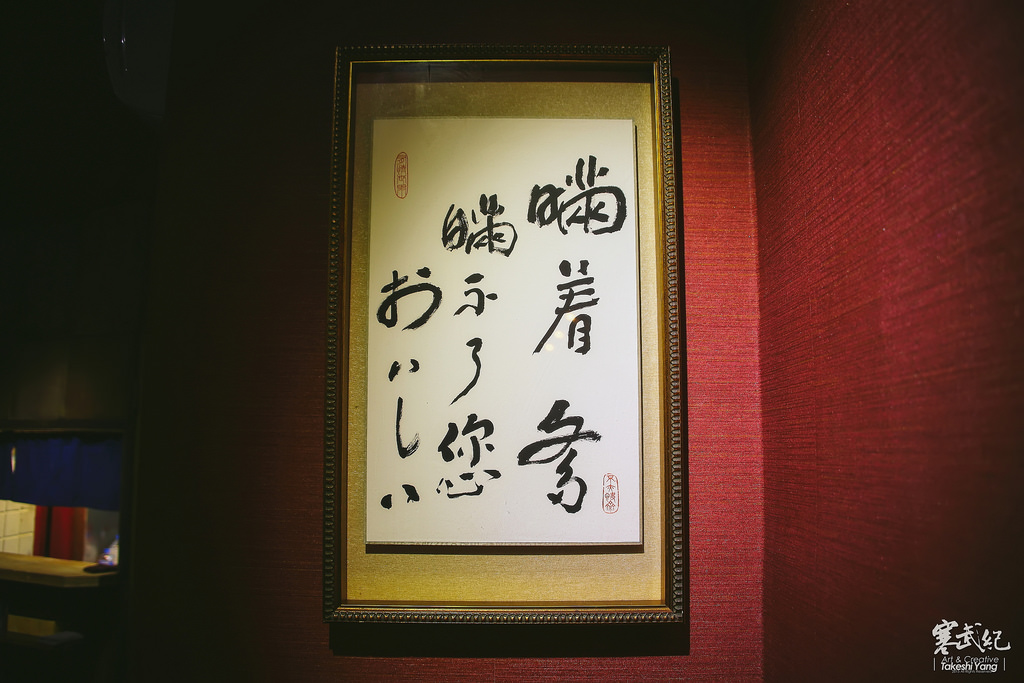 瞞着爹
瞞不了您
おいしい
寒武紀
Art & Creative
Takeshi Yang